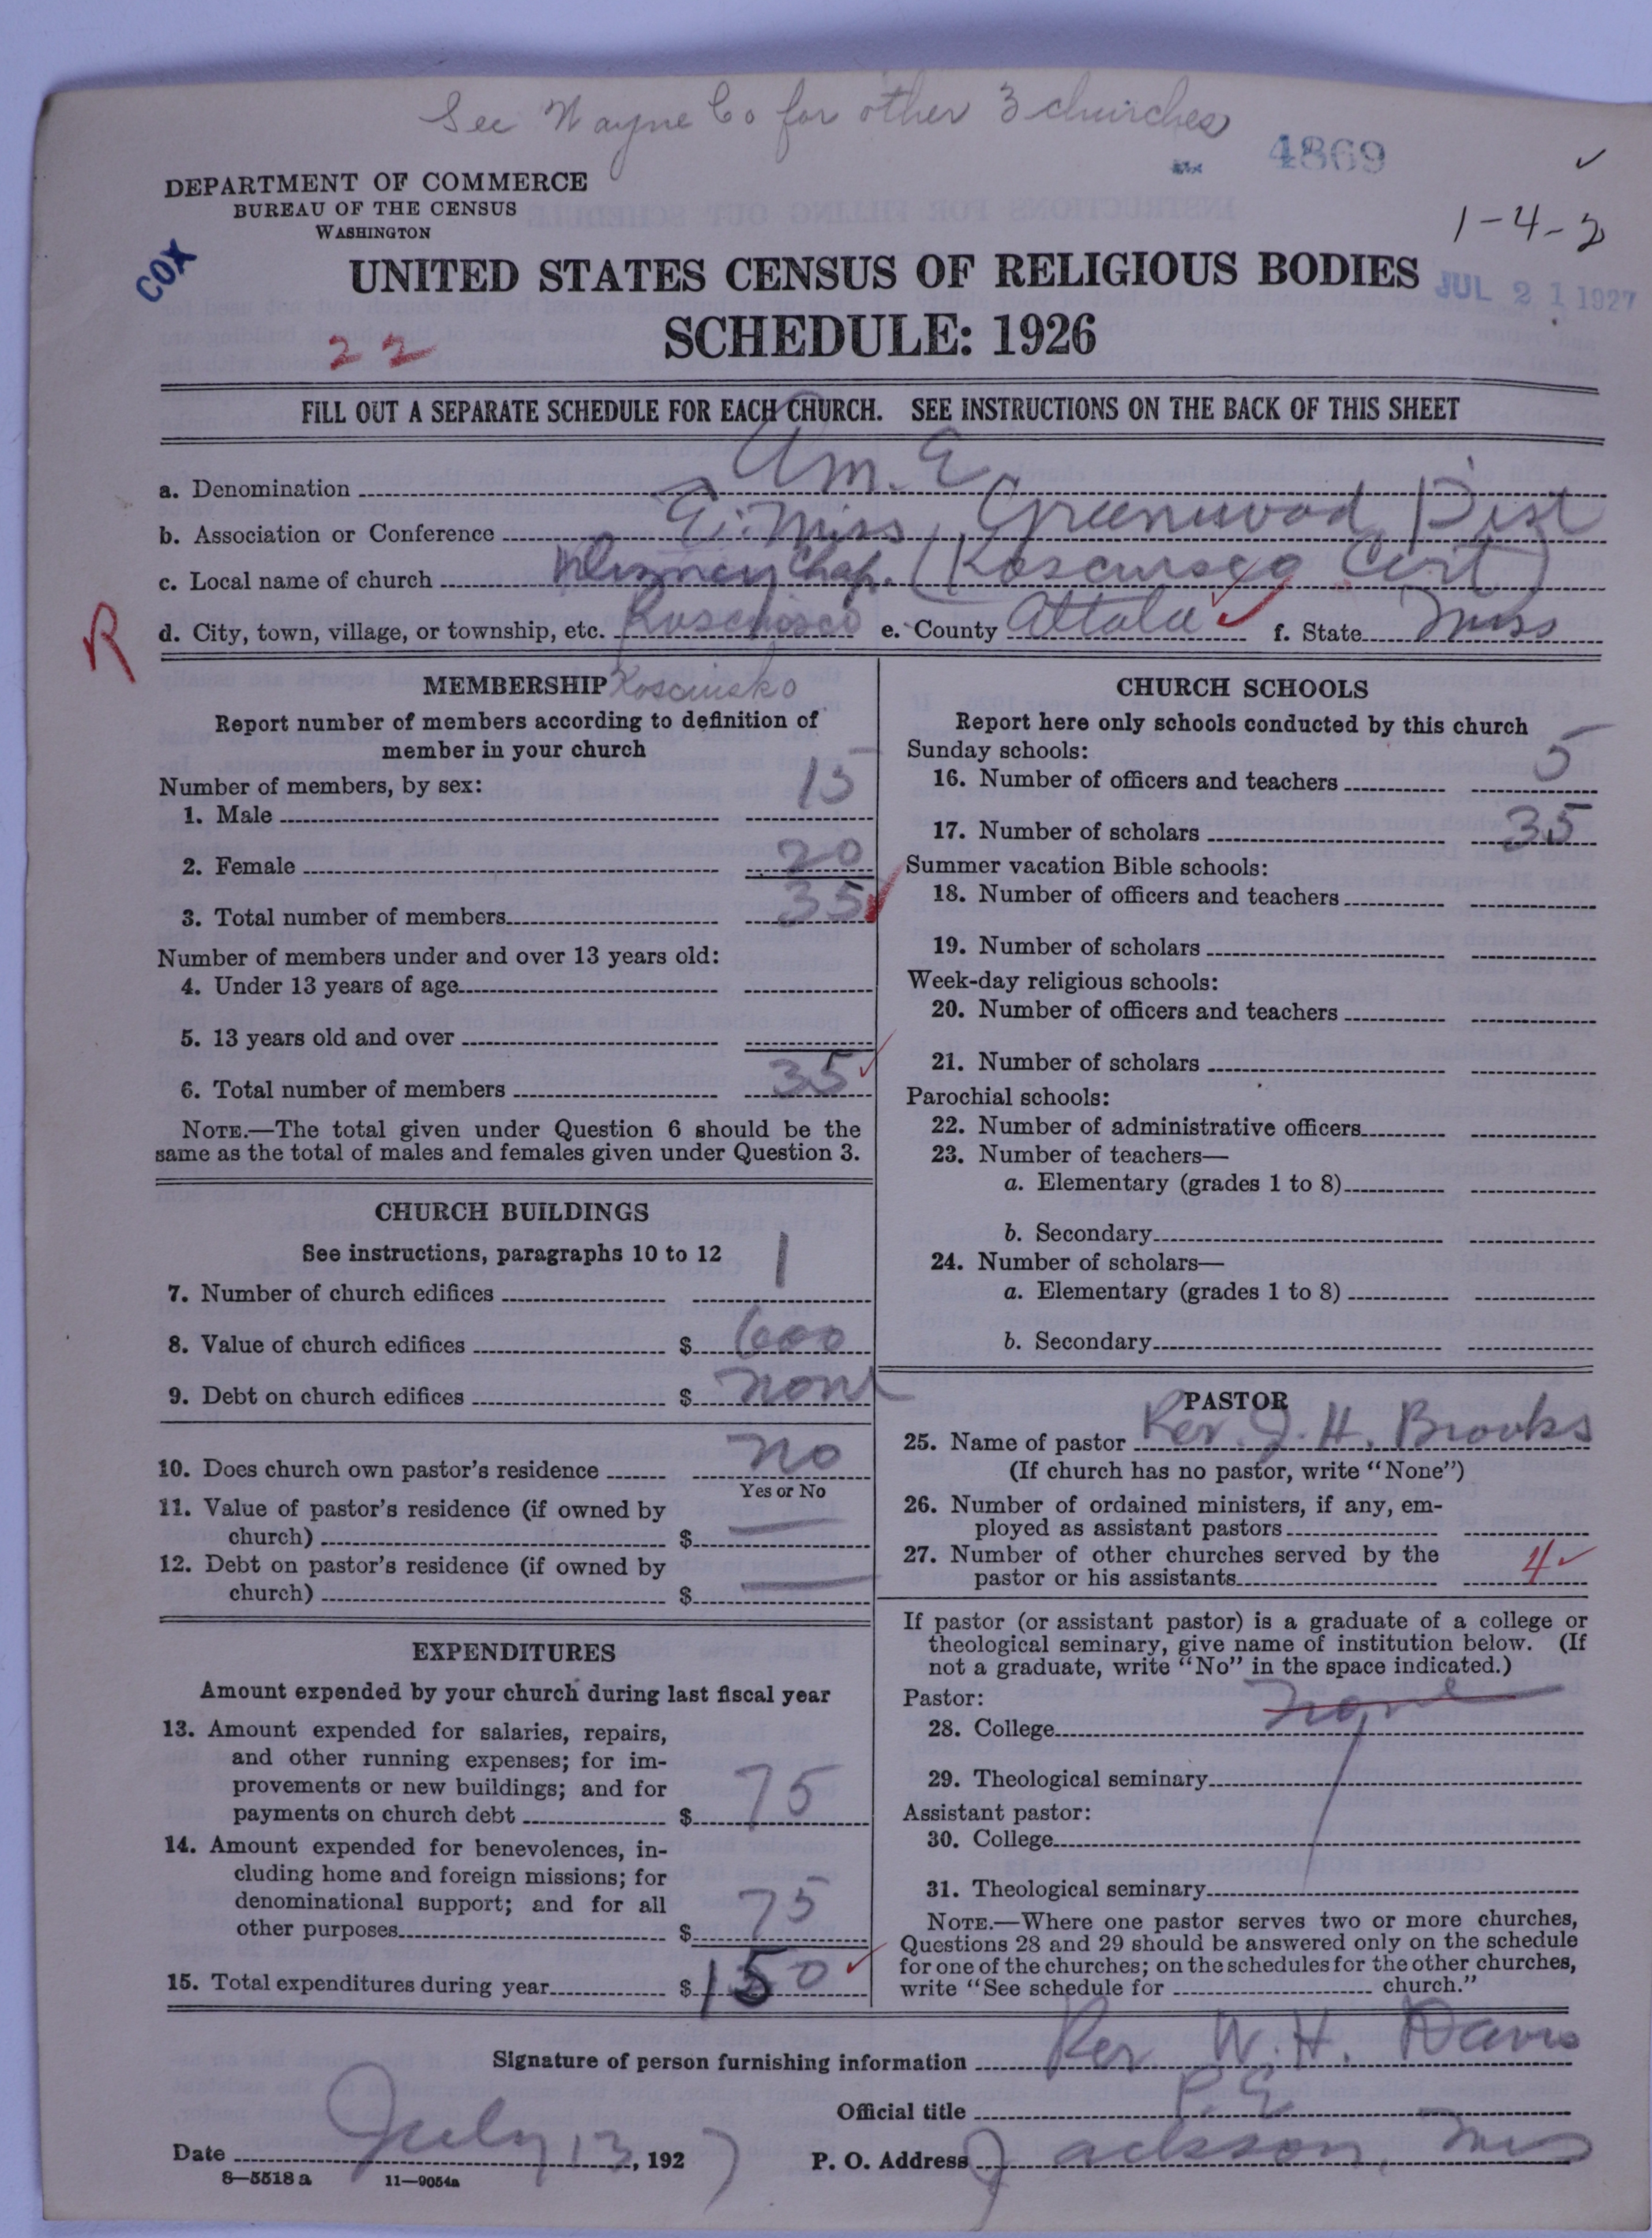 See Wayne Co for other 3 churches
4869
DEPARTMENT OF COMMERCE
BUREAU OF THE CENSUS
WASHINGTON
1-4-2
COX
UNITED STATES CENSUS OF RELIGIOUS BODIES
JUL 21 1927
SCHEDULE: 1926
22
FILL OUT A SEPARATE SCHEDULE FOR EACH CHURCH. SEE INSTRUCTIONS ON THE BACK OF THIS SHEET
a. Denomination Am. E
b. Association or Conference E. Miss Greenwood Dist
c. Local name of church Chap. (Kosciusco Cirt)
R
d. City, town, village, or township, etc. Kosciosco e. County Attala f. State Miss
MEMBERSHIP Kosciusko
Report number of members according to definition of member in your church
Number of members, by sex:
1. Male 15
2. Female 20
3. Total number of members 35
Number of members under and over 13 years old:
4. Under 13 years of age
5. 13 years old and over
6. Total number of members 35
NOTE.—The total given under Question 6 should be the
same as the total of males and females given under Question 3.
CHURCH BUILDINGS
See instructions, paragraphs 10 to 12
7. Number of church edifices 1
8. Value of church edifices $ 600
9. Debt on church edifices $ none
10. Does church own pastor's residence no
Yes or No
11. Value of pastor's residence (if owned by
church) $ —
12. Debt on pastor's residence (if owned by
church) $ —
EXPENDITURES
Amount expended by your church during last fiscal year
13. Amount expended for salaries, repairs,
and other running expenses; for im-
provements or new buildings; and for
payments on church debt $ 75
14. Amount expended for benevolences, in-
cluding home and foreign missions; for
denominational support; and for all
other purposes $ 75
15. Total expenditures during year $ 150
CHURCH SCHOOLS
Report here only schools conducted by this church
Sunday schools:
16. Number of officers and teachers 5
17. Number of scholars 35
Summer vacation Bible schools:
18. Number of officers and teachers
19. Number of scholars
Week-day religious schools:
20. Number of officers and teachers
21. Number of scholars
Parochial schools:
22. Number of administrative officers
23. Number of teachers—
a. Elementary (grades 1 to 8)
b. Secondary
24. Number of scholars—
a. Elementary (grades 1 to 8)
b. Secondary
PASTOR
25. Name of pastor Rev. J. H. Brooks
(If church has no pastor, write "None")
26. Number of ordained ministers, if any, em-
ployed as assistant pastors
27. Number of other churches served by the
pastor or his assistants 4
If pastor (or assistant pastor) is a graduate of a college or
theological seminary, give name of institution below. (If
not a graduate, write "No" in the space indicated.)
Pastor:
28. College none
29. Theological seminary
Assistant pastor:
30. College
31. Theological seminary
NOTE.—Where one pastor serves two or more churches,
Questions 28 and 29 should be answered only on the schedule
for one of the churches; on the schedules for the other churches,
write "See schedule for church."
Signature of person furnishing information Rev W. H. Davis
Official title P. E
Date July 13, 1927 P. O. Address Jackson, Miss
8—5518 a 11—9054a